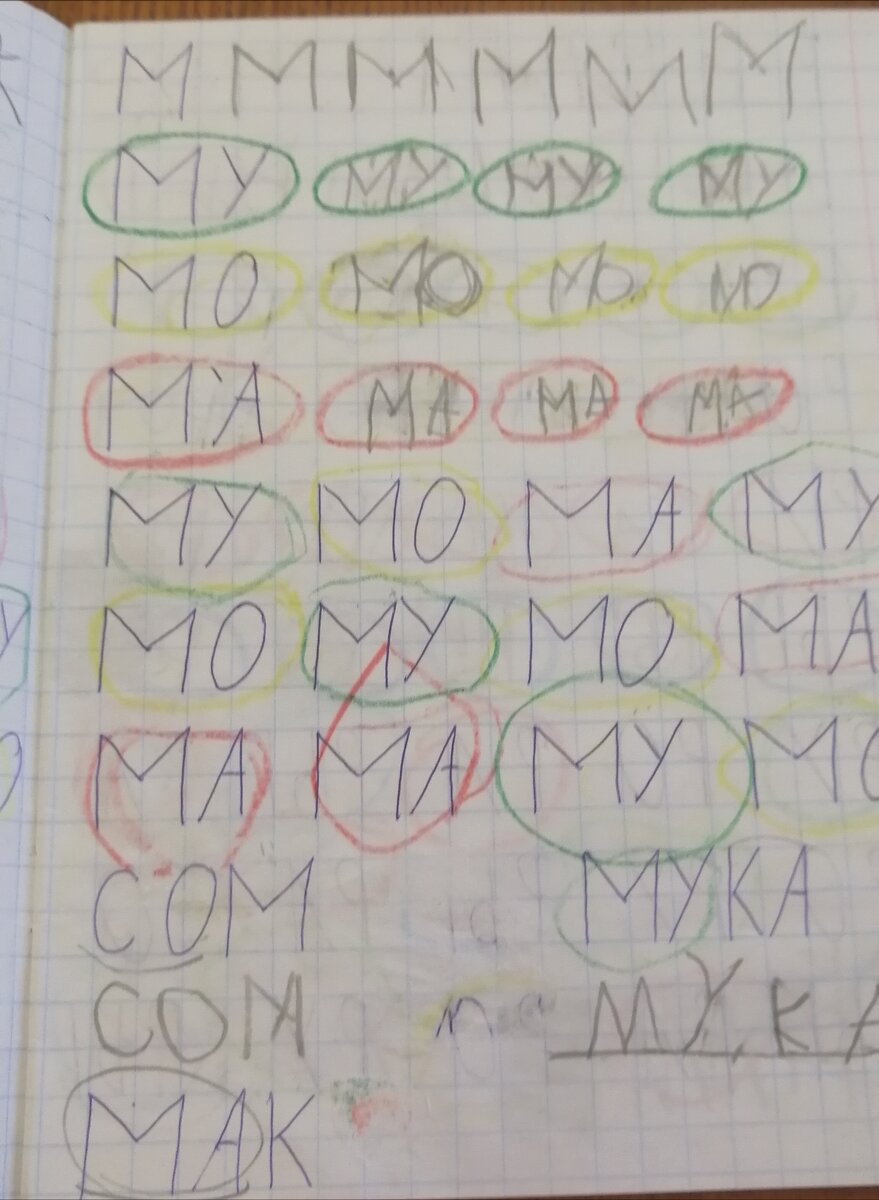 М М М М М М
МУ МУ МУ МУ
МО МО МО МО
МА МА МА МА
МУ МО МА МУ
МО МУ МО МА
МА МА МУ МО
СОМ МУКА
СОМ МУКА
МАК